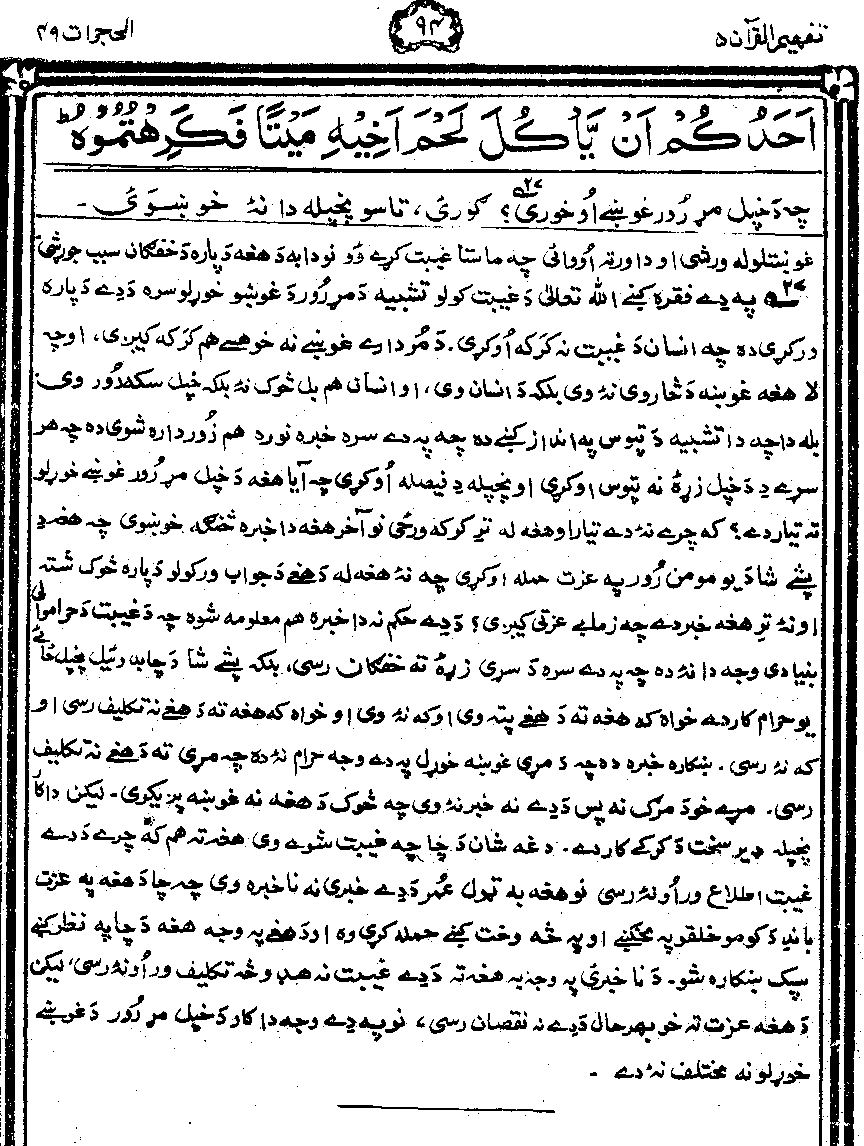 تفہیم القرآن ۵
۹۴
الحجرات ۴۹
اَحَدُكُمْ اَنْ يَّاْكُلَ لَحْمَ اَخِيْهِ مَيْتًا فَكَرِهْتُمُوْهُ ؕ
چه دَ خپل مړ رُور غوښې اُوخوری؟ ۲۷ ګورئ، تاسو پخپله دا نهٔ خوښوئ -
غوښتلو له ورشی او دا ورته اُووائی چه ما ستا غیبت کړے وُو نو دا به دَ هغه دَ پاره دَ خفګان سبب جوړشی
۲۷ په دے فقره کښے الله تعالیٰ دَ غیبت کولو تشبیه دَ مړ رُور دَ غوښو خوړلو سره دَ دے دَ پاره
ورکړی ده چه انسان دَ غیبت نه کرکه اُوکړی. دَ مُردارے غوښے نه خو هسے هم کرکه کیږی، او چه
لا هغه غوښه دَ څاروی نهٔ وی بلکه دَ انسان وی، او انسان هم بل څوک نهٔ بلکه خپل سکه رُور وی.
بله دا چه دا تشبیه دَ تپوس په انداز کښے ده چه په دے سره خبره نوره هم زُورداره شوی ده چه هر
سړے دِ دَ خپل زړهٔ نه تپوس اوکړی او پخپله دِ فیصله اُوکړی چه آیا هغه دَ خپل مړ رُور غوښے خوړلو
ته تیار دے؟ که چرے نهٔ دے تیار او هغه له تر کرکه ورځی نو آخر هغه دا خبره څنګه خوښوی چه هغه دِ
پشے شا دَ یو مومن رُور په عزت حمله اوکړی چه نهٔ هغه له دَ هغے دَ جواب ورکولو دَ پاره څوک شته
او نهٔ تر هغه خبر دے چه زما بے عزتی کیږی؟ دَ دے حکم نه دا خبره هم معلومه شوه چه دَ غیبت دَ حراموالی
بنیادی وجه دا نهٔ ده چه په دے سره دَ سړی زړهٔ ته خفګان رسی، بلکه پشے شا دَ چا بد وئیل پخپل ځائے
یو حرام کار دے خواه که هغه ته دَ هغے پته وی او که نهٔ وی او خواه که هغه ته دَ هغے نه تکلیف رسی او
که نهٔ رسی. ښکاره خبره ده چه دَ مړی غوښه خوړل په دے وجه حرام نهٔ ده چه مړی ته دَ هغے نه تکلیف
رسی. مړے خو دَ مرګ نه پس دَ دے نه خبر نهٔ وی چه څوک دَ هغه نه غوښه پریکړی- لیکن دا کار
پخپله ډیر سخت دَ کرکے کار دے. دغه شان دَ چا چه غیبت شوے وی هغه ته هم که چرے دَ دے
غیبت اطلاع ور اُو نهٔ رسی نو هغه به ټول عُمر دَ دے خبری نه ناخبره وی چه چا دَ هغه په عزت
باندِ دَ کومو خلقو په مخکښے او په څه وخت کښے حمله کړی وه او دَ هغے په وجه هغه دَ چا په نظر کښے
سپک ښکاره شو. دَ ناخبرئ په وجه به هغه ته دَ دے غیبت نه هډو څه تکلیف ور اُو نهٔ رسی، لیکن
دَ هغه عزت ته خو بهرحال دَ دے نه نقصان رسی، نو په دے وجه دا کار دَ خپل مړ رُور دَ غوښے
خوړلو نه مختلف نهٔ دے -